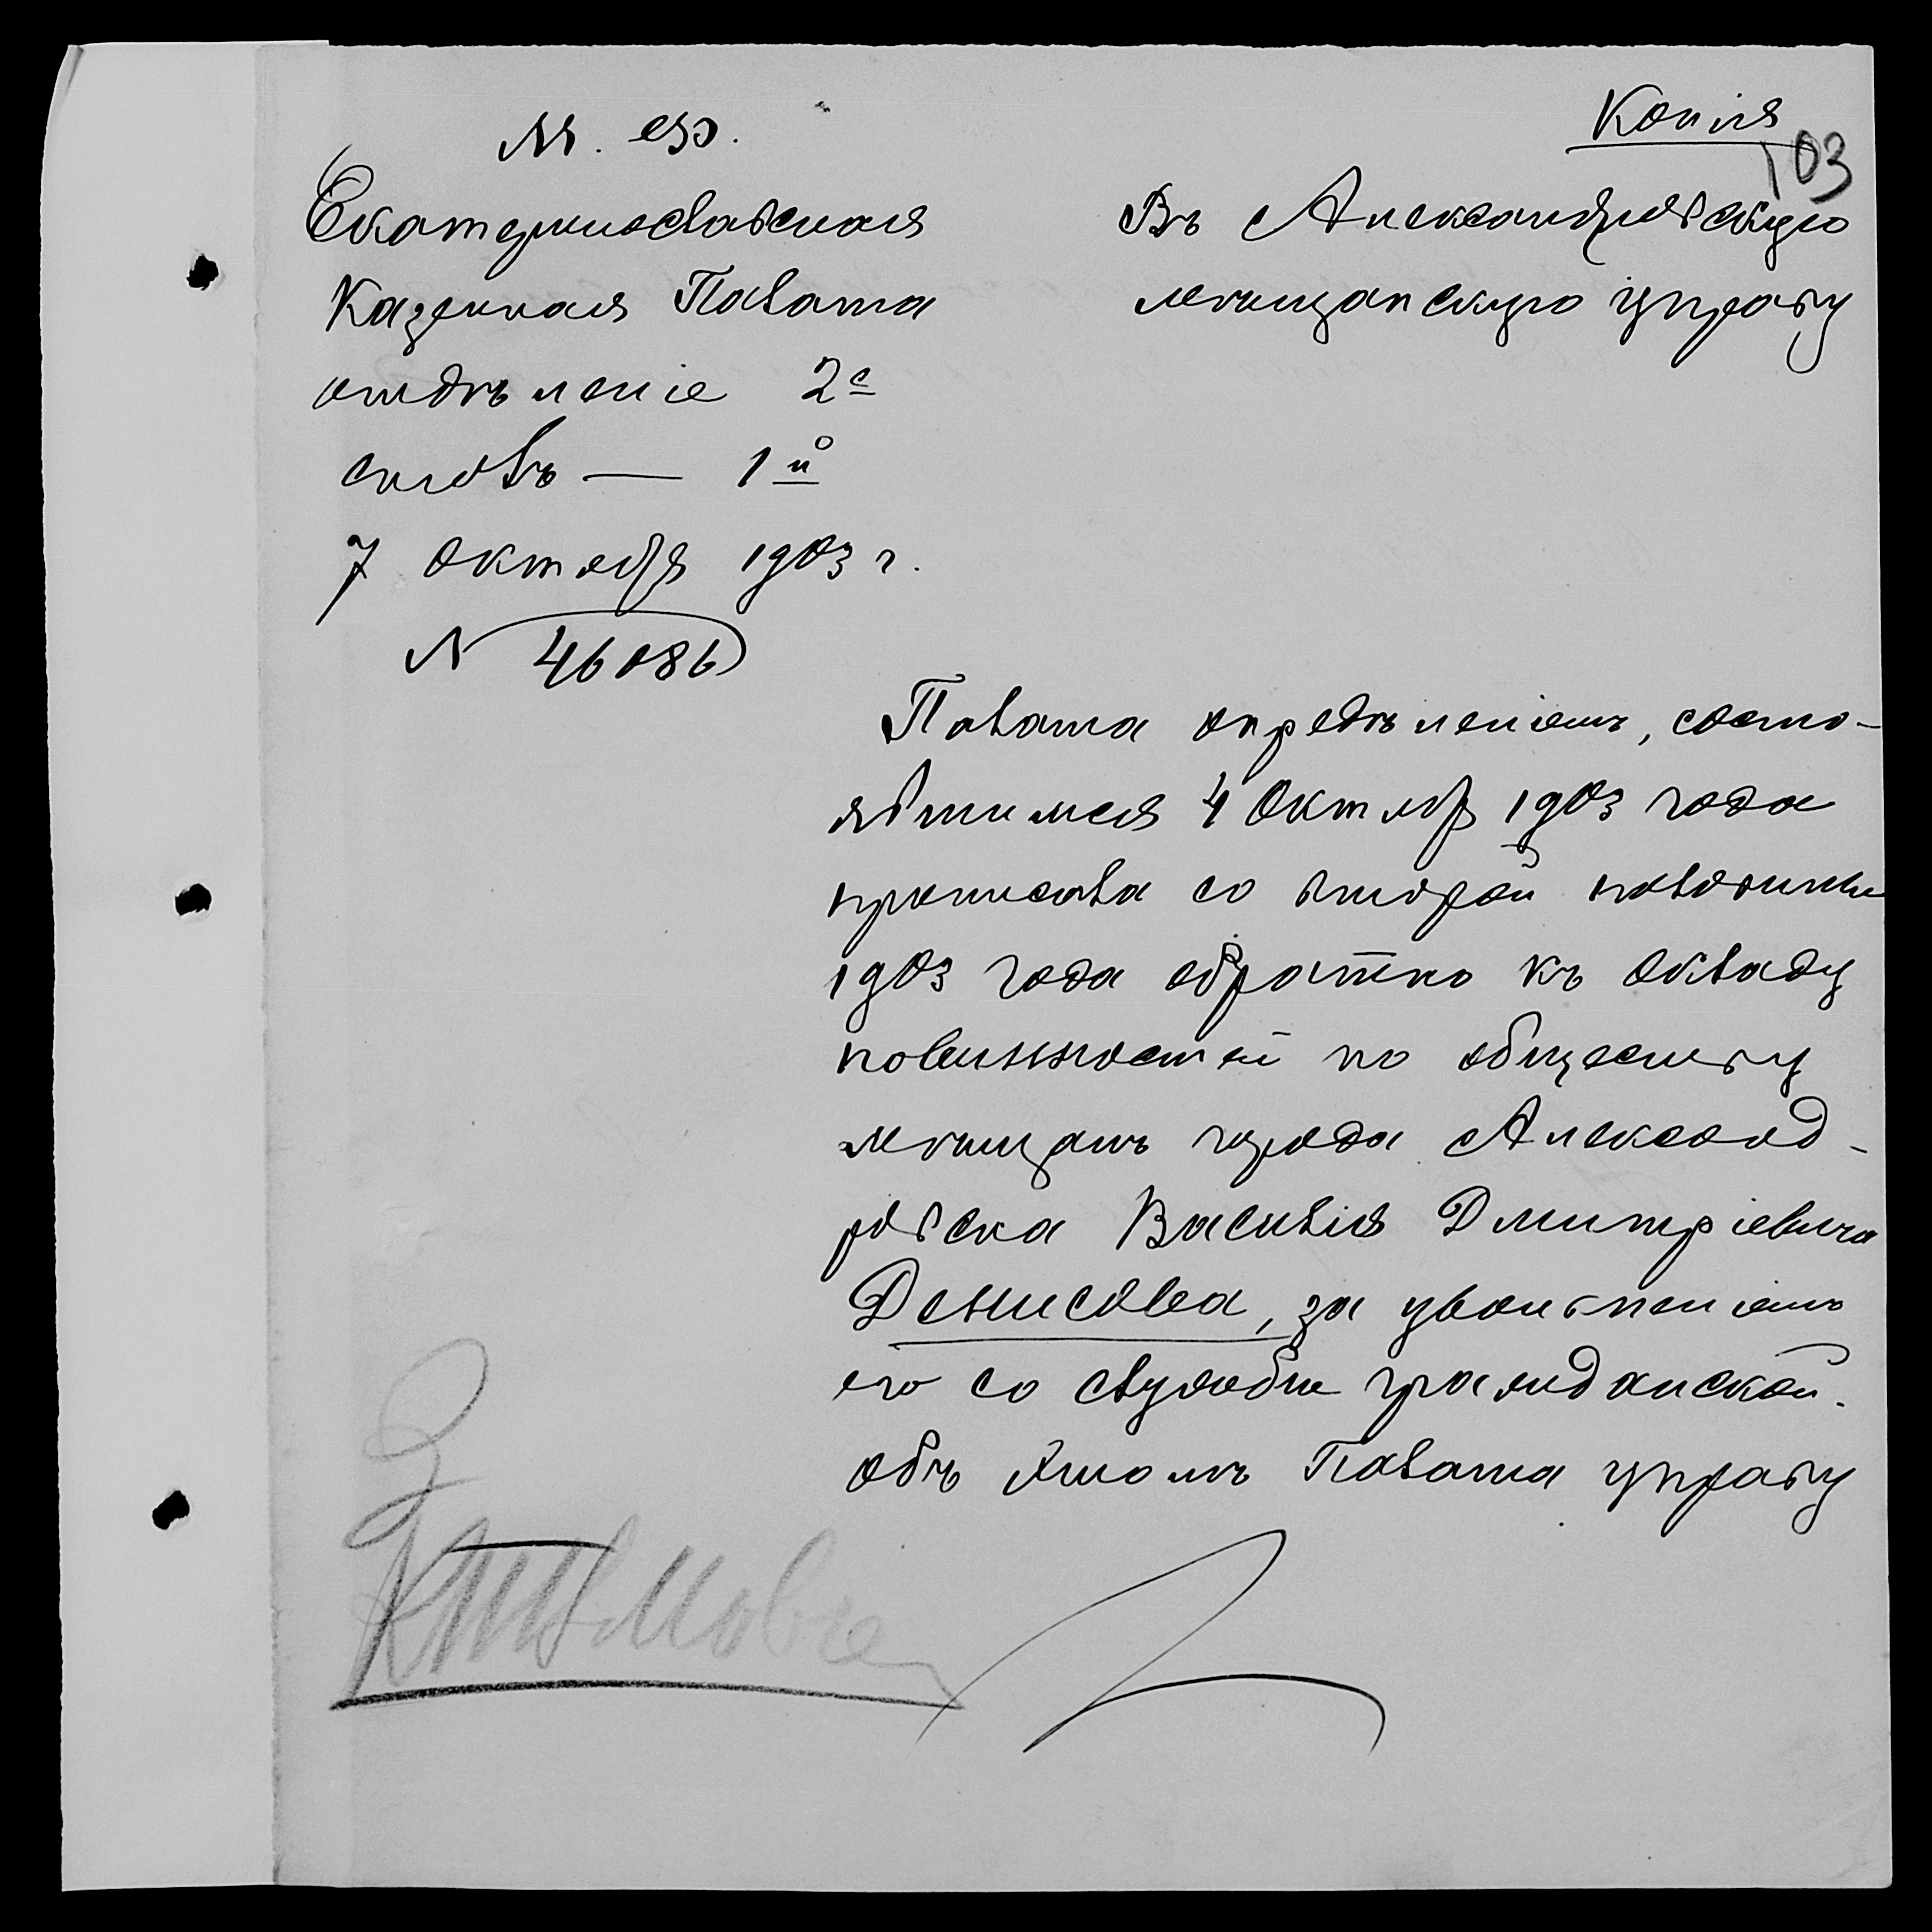 Копія
103
М. Ф.
Екатеринославская
Казенная Палата
отдѣленіе 2е
столъ — 1й
7 Октября 1903 г.
N 46086
Въ Александровскую
мѣщанскую управу
Палата опредѣленіемъ, состо-
явшимся 4 Октябр 1903 года
причисла со второй половины
1903 года обратно къ окладу
повинностей по обществу
мѣщанъ города Александ-
ровска Василія Дмитріевича
Денисова, за увольненіемъ
его со службы гражданской.
объ этомъ Палата управу